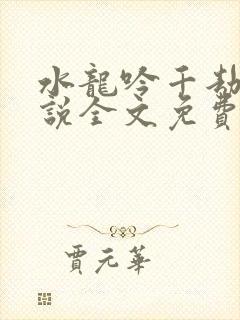 水龍吟千劫
說全文免費
賈元華